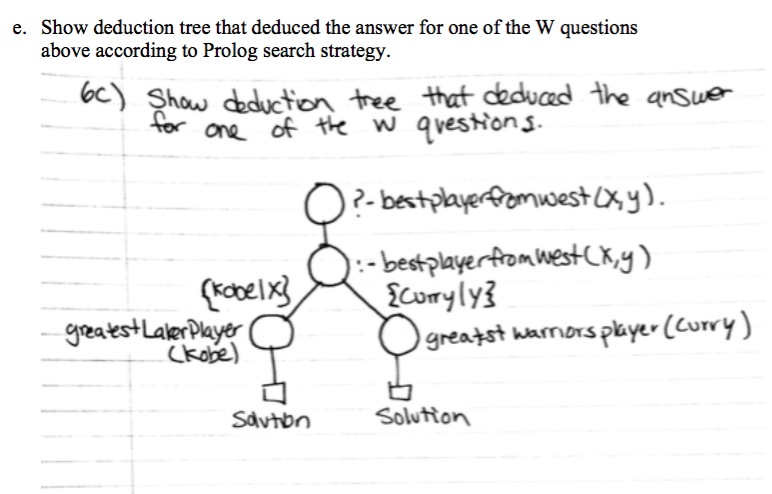 e. Show deduction tree that deduced the answer for one of the W questions
above according to Prolog search strategy.
6c) Show deduction tree that deduced the answer
for one of the W questions.
?- bestplayerfromwest(X,y).
:- bestplayerfromwest(X,y)
{Kobe|X} {Curry|y}
greatestLakerPlayer
(Kobe)
greatst warriors player (Curry)
Solution Solution